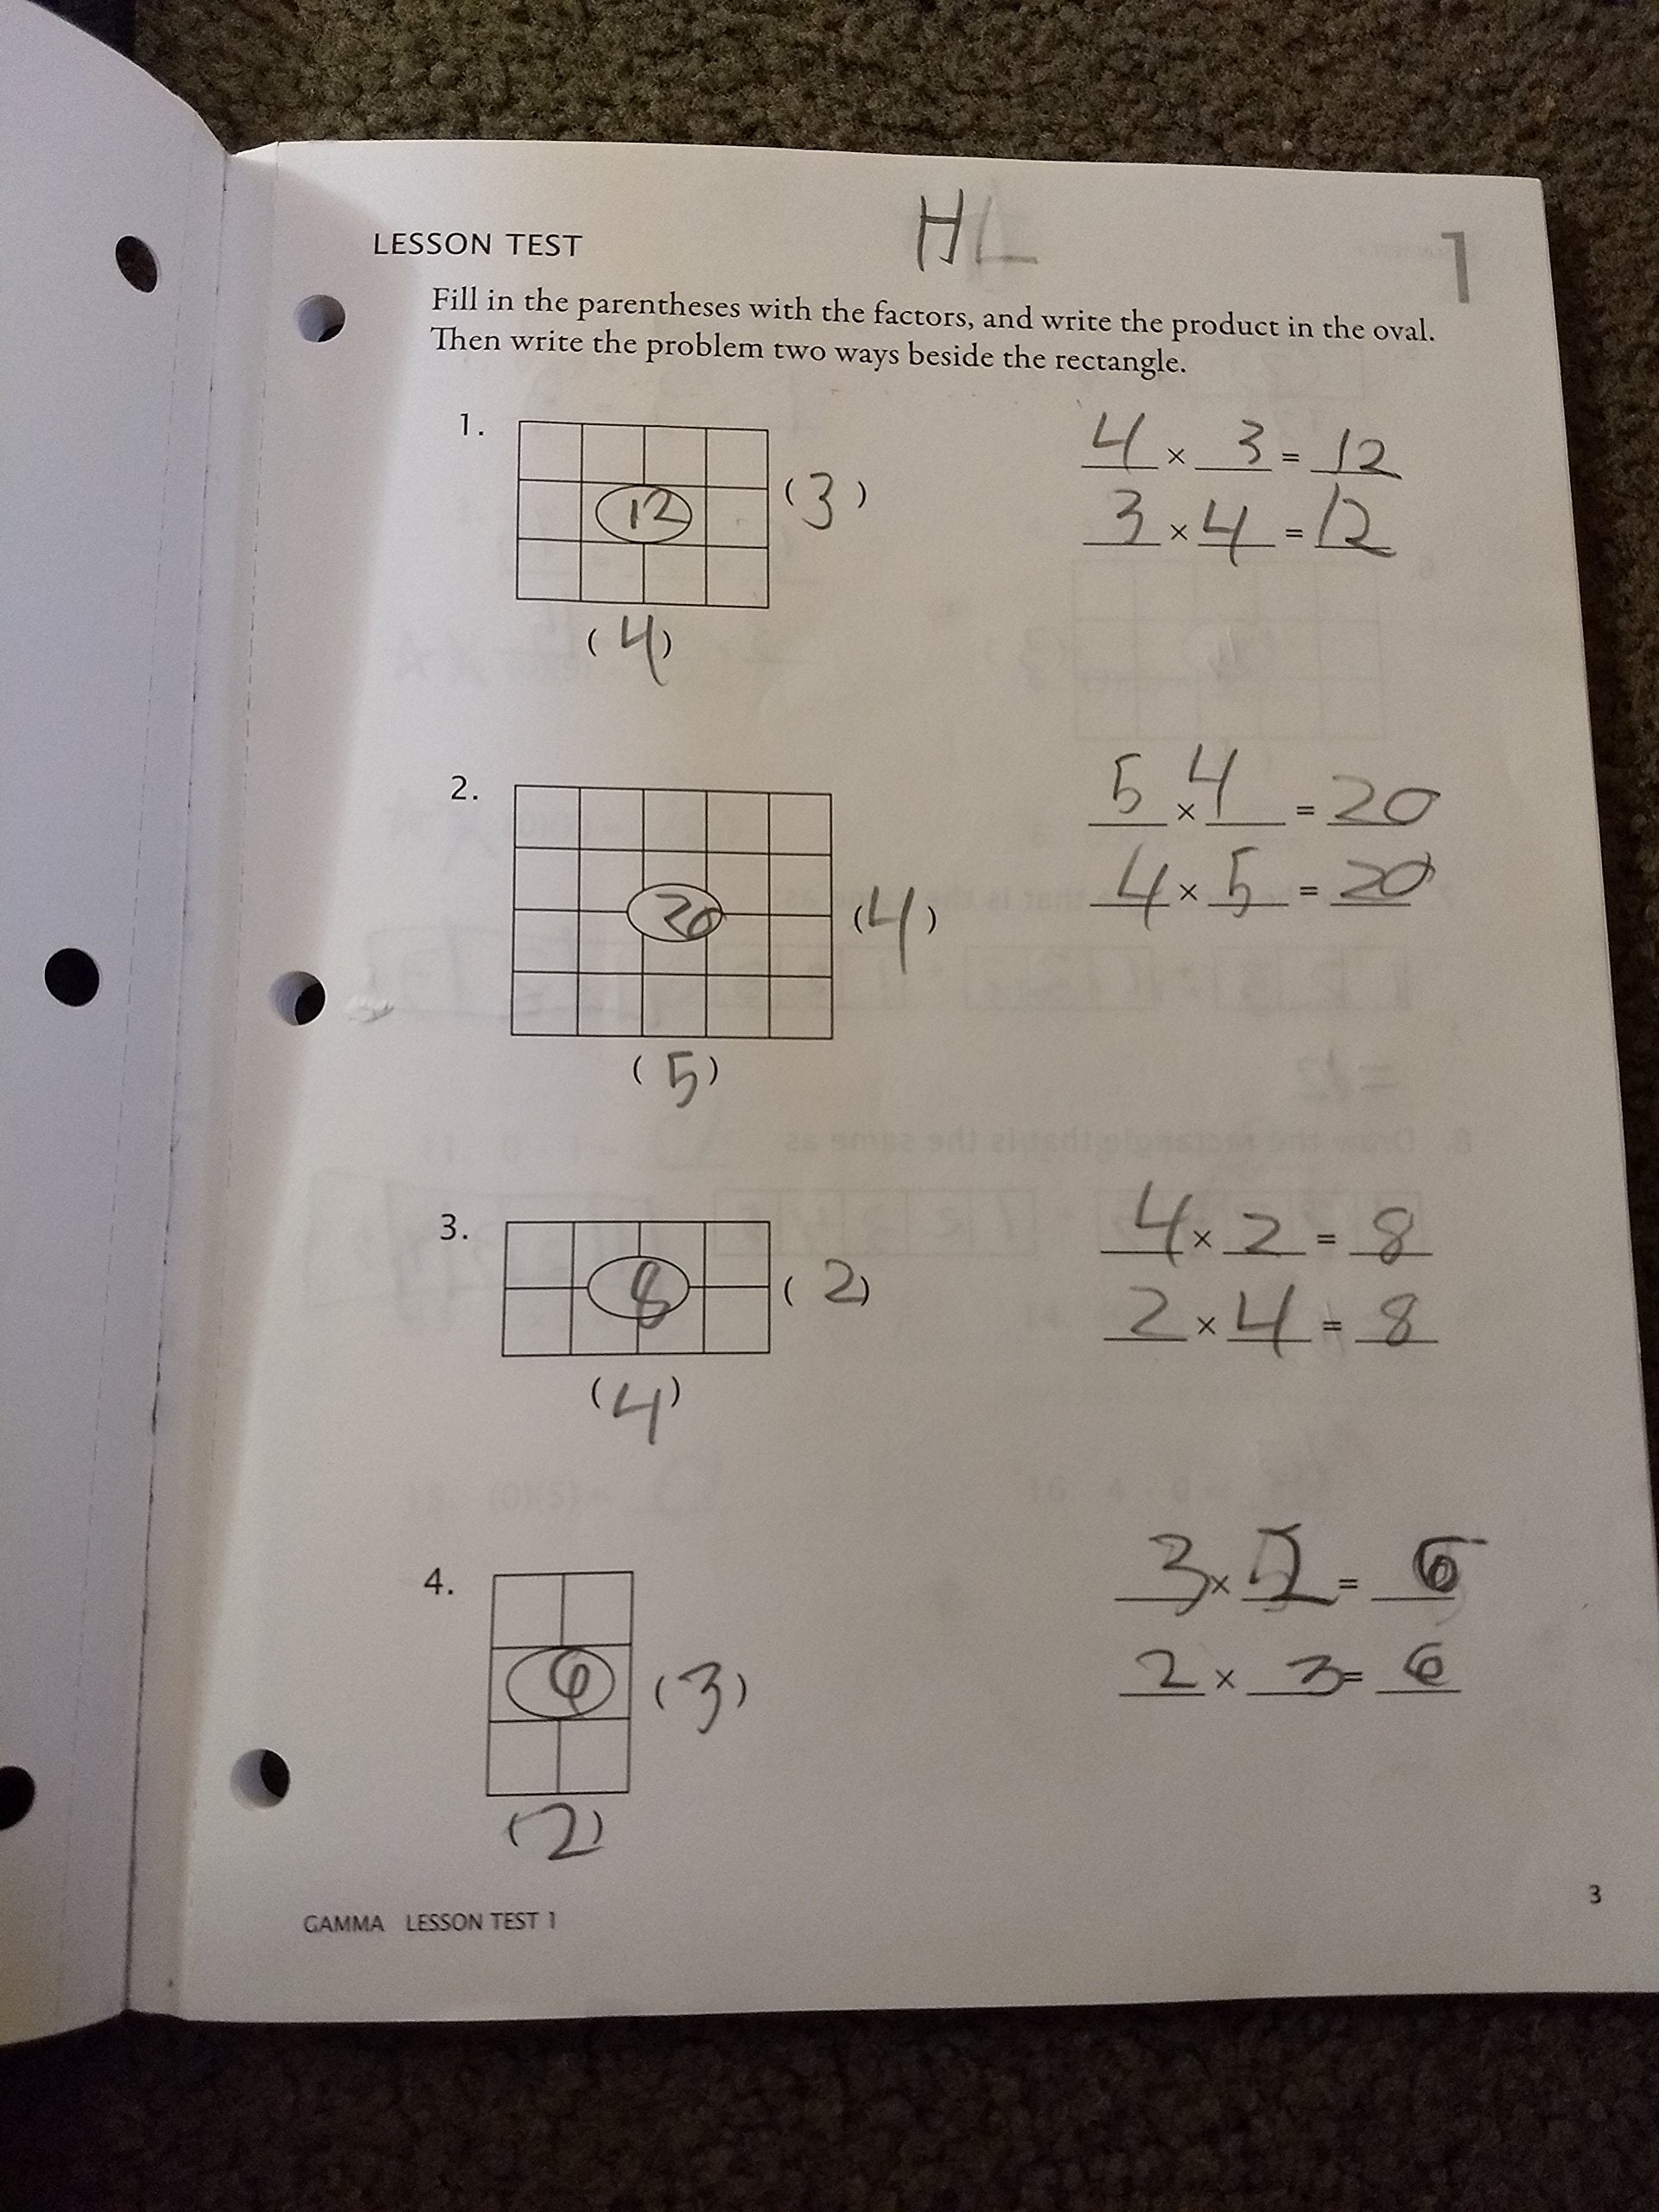 HL
LESSON TEST
1
Fill in the parentheses with the factors, and write the product in the oval.
Then write the problem two ways beside the rectangle.
1.
12
(3)
(4)
4 × 3 = 12
3 × 4 = 12
2.
20
(4)
(5)
5 × 4 = 20
4 × 5 = 20
3.
8
(2)
(4)
4 × 2 = 8
2 × 4 = 8
4.
6
(3)
(2)
3 × 2 = 6
2 × 3 = 6
GAMMA LESSON TEST 1
3